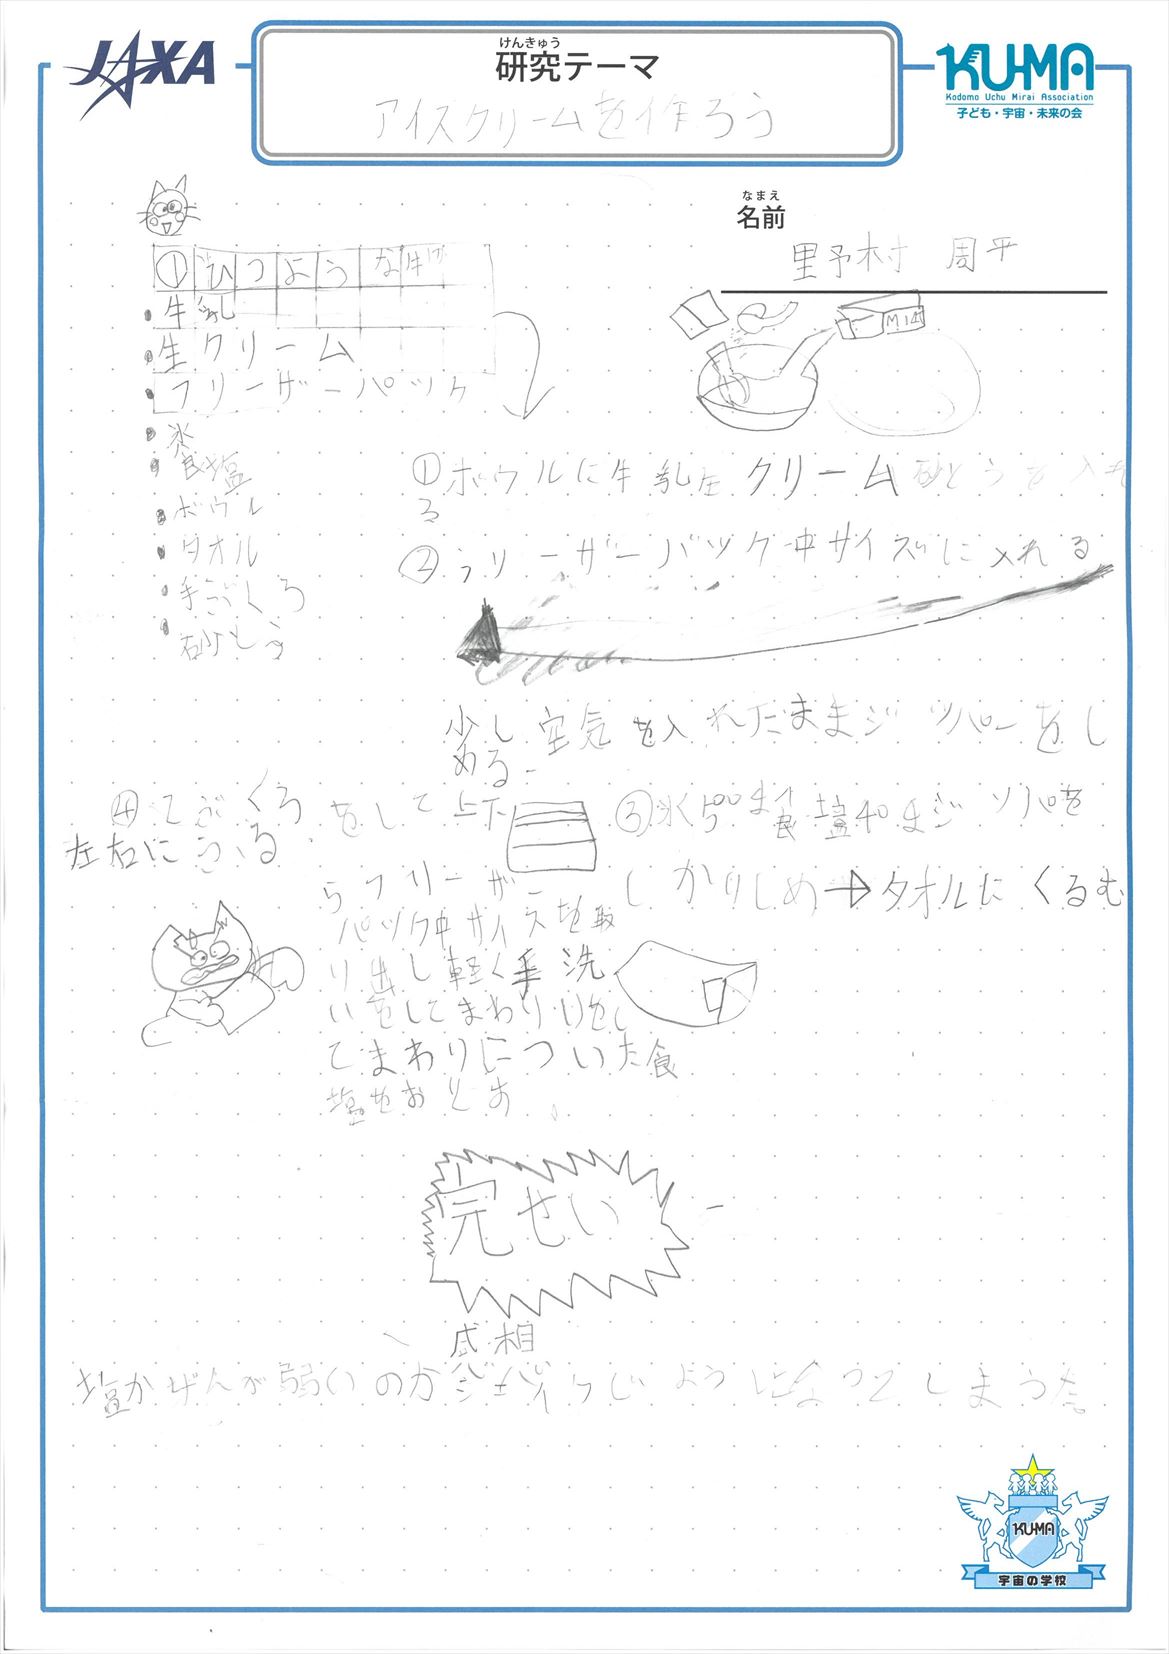 JAXA
けんきゅう
研究テーマ
アイスクリームを作ろう
KU-MA
Kodomo Uchu Mirai Association
子ども・宇宙・未来の会
なまえ
名前
里予村 周平
①ひつような
牛乳
生クリーム
フリーザーパック
氷
食塩
ボウル
タオル
手ぶくろ
砂とう
MILK
①ボウルに牛乳生クリーム砂とうを入れ
る
②フリーザーパック中サイズに入れる
少し空気を入れたままジッパーをし
める
③氷 食塩 ジッパを
しかりしめ→タオルにくるむ
④てぶくろをして上下
左右にふる
らフリーザー
パック中サイズを取
り出し軽く手洗
いをしてまわり
てまわりについた食
塩をおとす
完せい
感相
塩かげんが弱いのか ようになってしまう
KU-MA
宇宙の学校